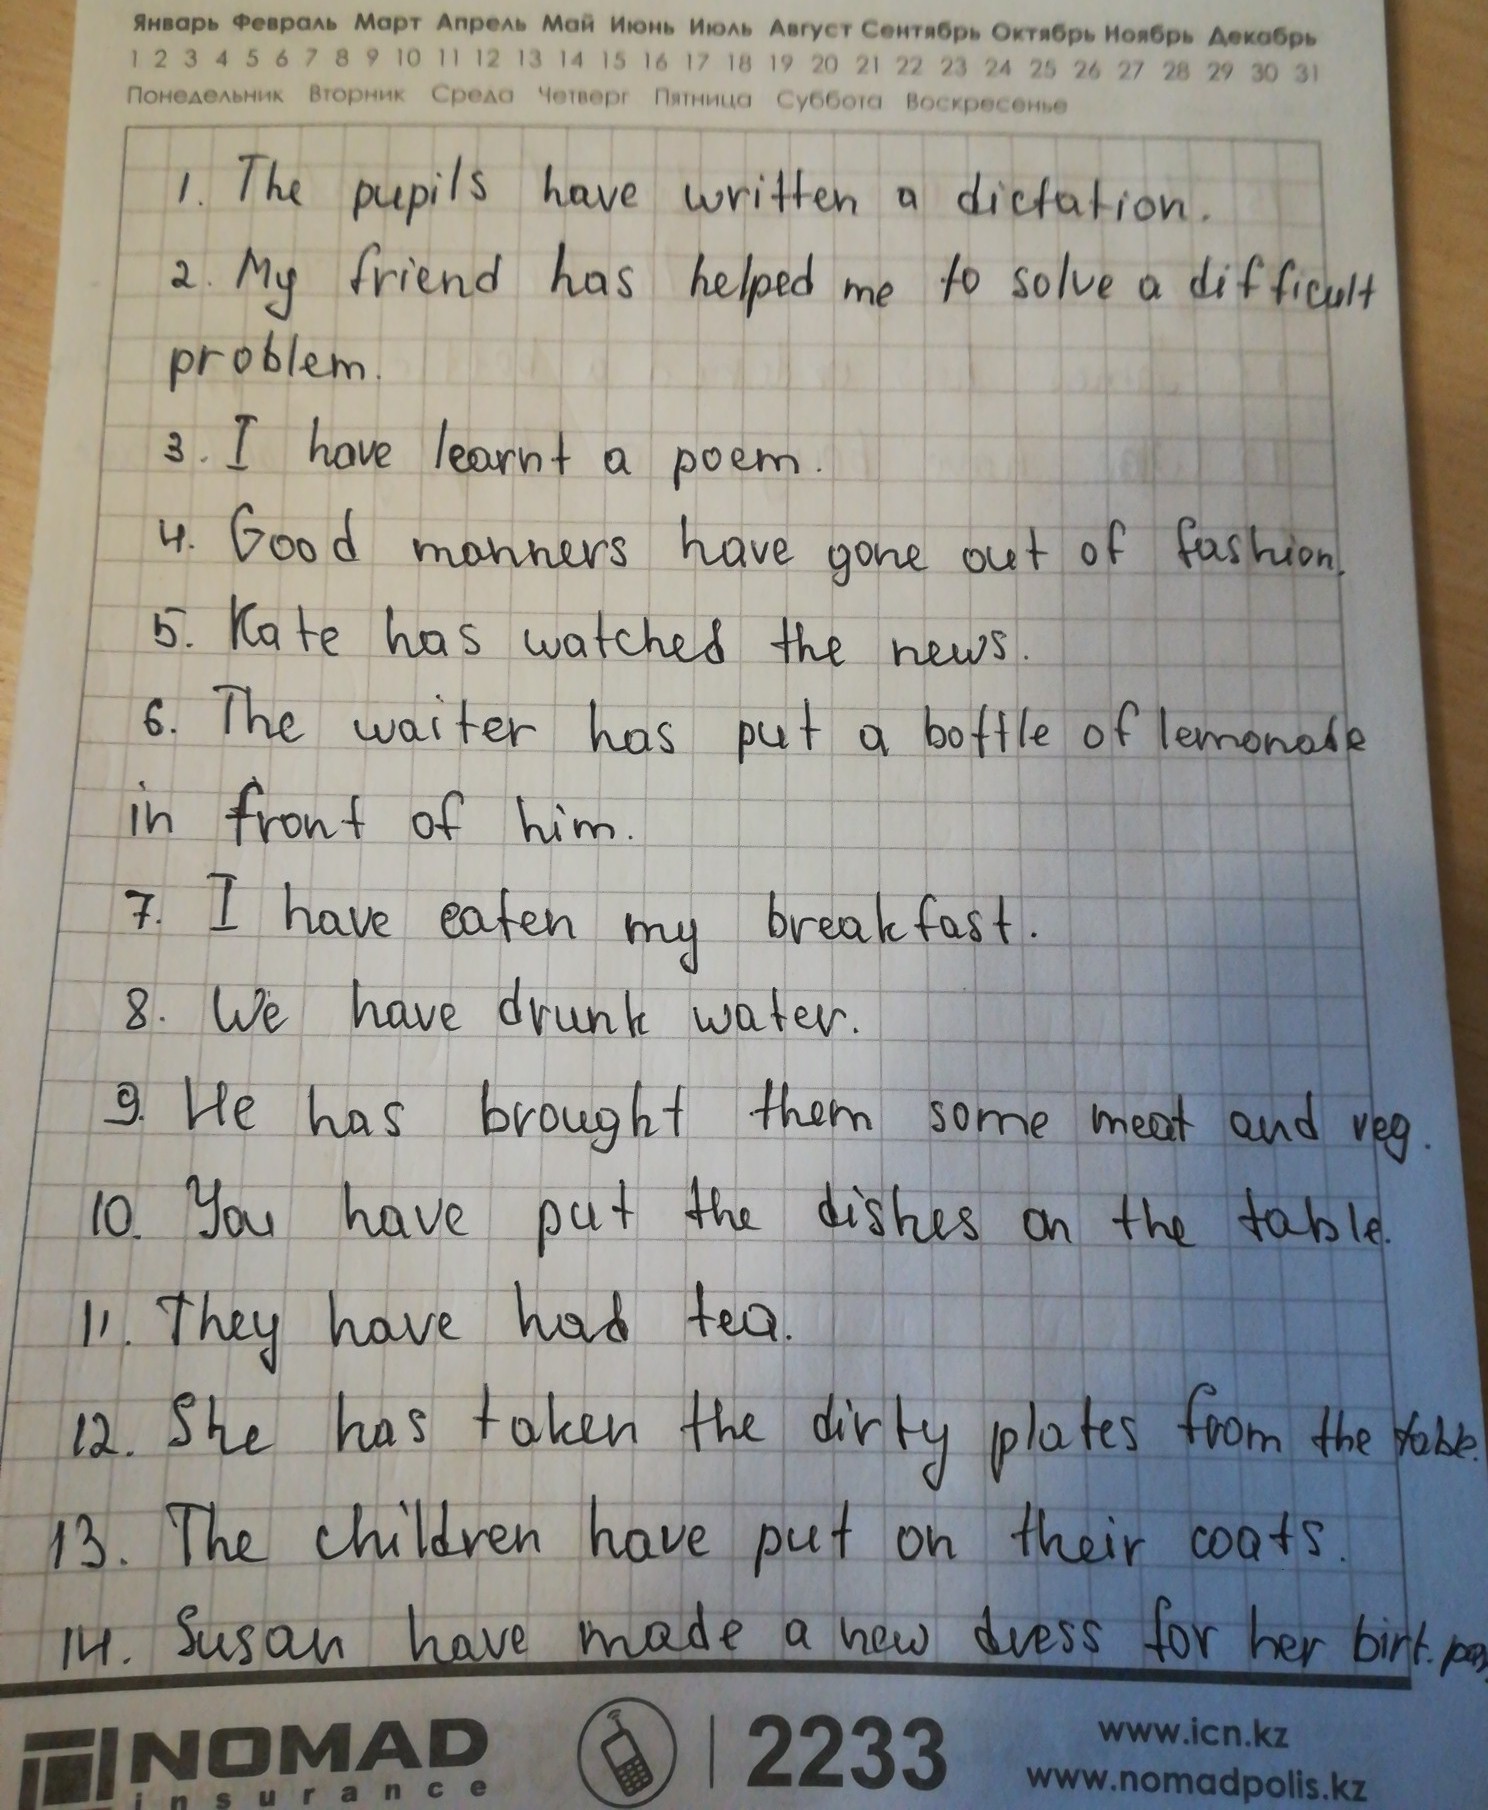 Январь Февраль Март Апрель Май Июнь Июль Август Сентябрь Октябрь Ноябрь Декабрь
1 2 3 4 5 6 7 8 9 10 11 12 13 14 15 16 17 18 19 20 21 22 23 24 25 26 27 28 29 30 31
Понедельник Вторник Среда Четверг Пятница Суббота Воскресенье
1. The pupils have written a dictation.
2. My friend has helped me to solve a difficult
problem.
3. I have learnt a poem.
4. Good manners have gone out of fashion.
5. Kate has watched the news.
6. The waiter has put a bottle of lemonade
in front of him.
7. I have eaten my breakfast.
8. We have drunk water.
9. He has brought them some meat and veg.
10. You have put the dishes on the table.
11. They have had tea.
12. She has taken the dirty plates from the table.
13. The children have put on their coats.
14. Susan have made a new dress for her birt.
NOMAD
insurance
2233
www.icn.kz
www.nomadpolis.kz